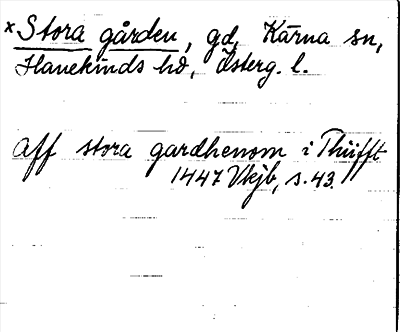 ×Stora gården, gd, Kärna sn,
Hanekinds hd, Österg. l.
Aff stora gardhenom i Thüfft
1447 Vkjb, s. 43.